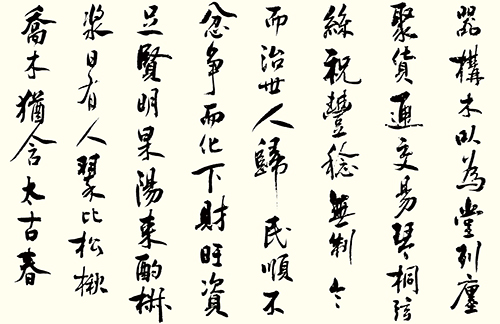 器構木以為堂列廛
聚貨通交易琴桐弦
絲祝豐稔無制令
而治世人歸民順不
忿爭而化下財旺資
足賢明杲陽來酌椒
漿日有人翠比松楸
喬木猶含太古春